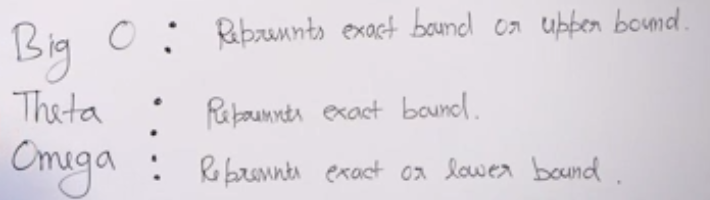 Big O : Represents exact bound or upper bound.
Theta : Represents exact bound.
Omega : Represents exact or lower bound.